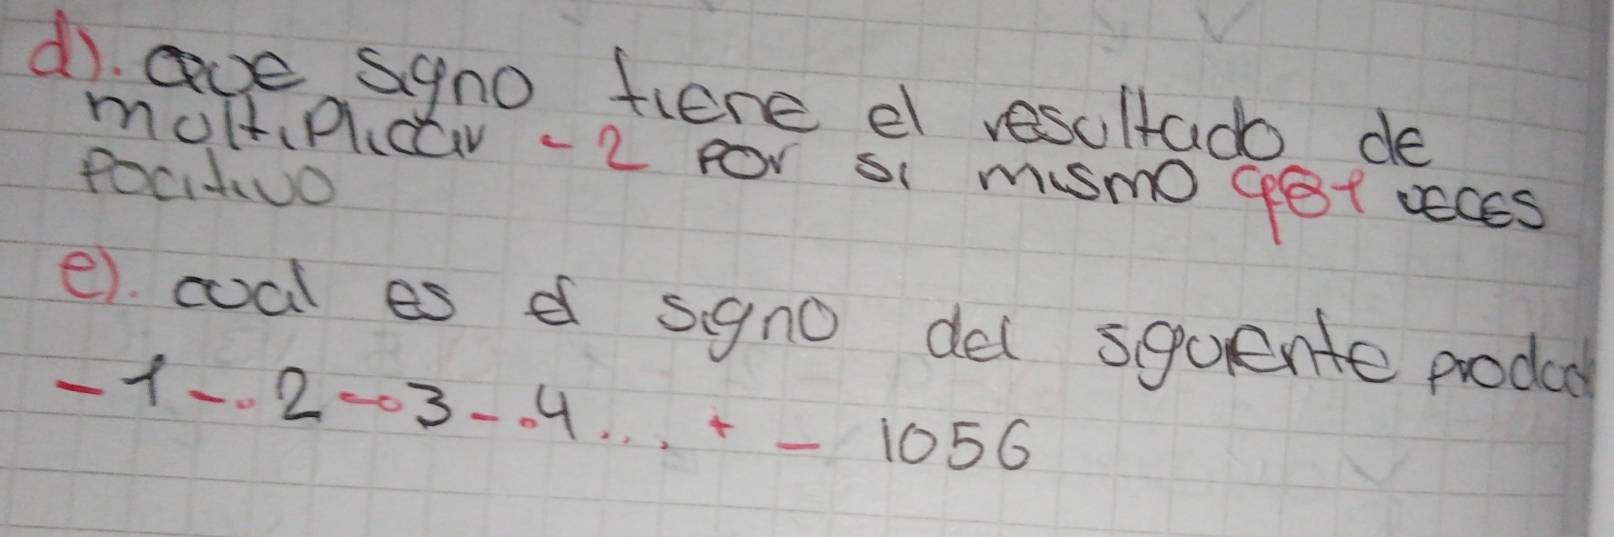 d). que signo tiene el resultado de
multiplicar -2 por si mismo veces
pocitivo
e). cual es el signo del siguente
-1-.2-.3-.4... + - 1056